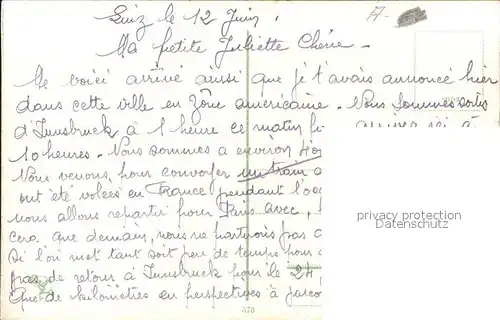 Linz le 12 Juin.
Ma petite Juliette Chérie -
Me voici arrivé ainsi que je t'avais annoncé hier
dans cette ville en zône américaine. Nous sommes sortis
d'Innsbruck à 1 heure ce matin
10 heures. Nous sommes a environ
Nous venons, pour convoyer un train
ont été volées en France pendant l'oc
nous allons repartir pour Paris avec,
cera que demain, nous ne partirons pas
Si l'on met tant soit peu de temps pour
pas de retour à Innsbruck pour le 24
Que de kilomètres en perspectives à
privacy protection
Datenschutz